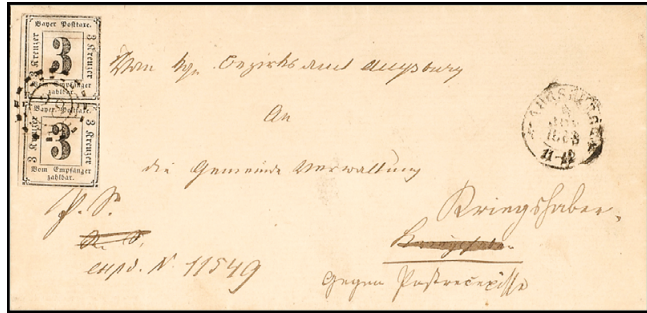 Bayer. Posttaxe.
3 Kreuzer 3 3 Kreuzer
Vom Empfänger
zahlbar.
Bayer. Posttaxe.
3 Kreuzer 3 3 Kreuzer
Vom Empfänger
zahlbar.
Vom kgl. Bezirksamt Augsburg
An
AUGSBURG
1868
11-12
die Gemeinde Verwaltung
Kriegshaber.
P. S.
expd. N. 11549
gegen Postrecepisse